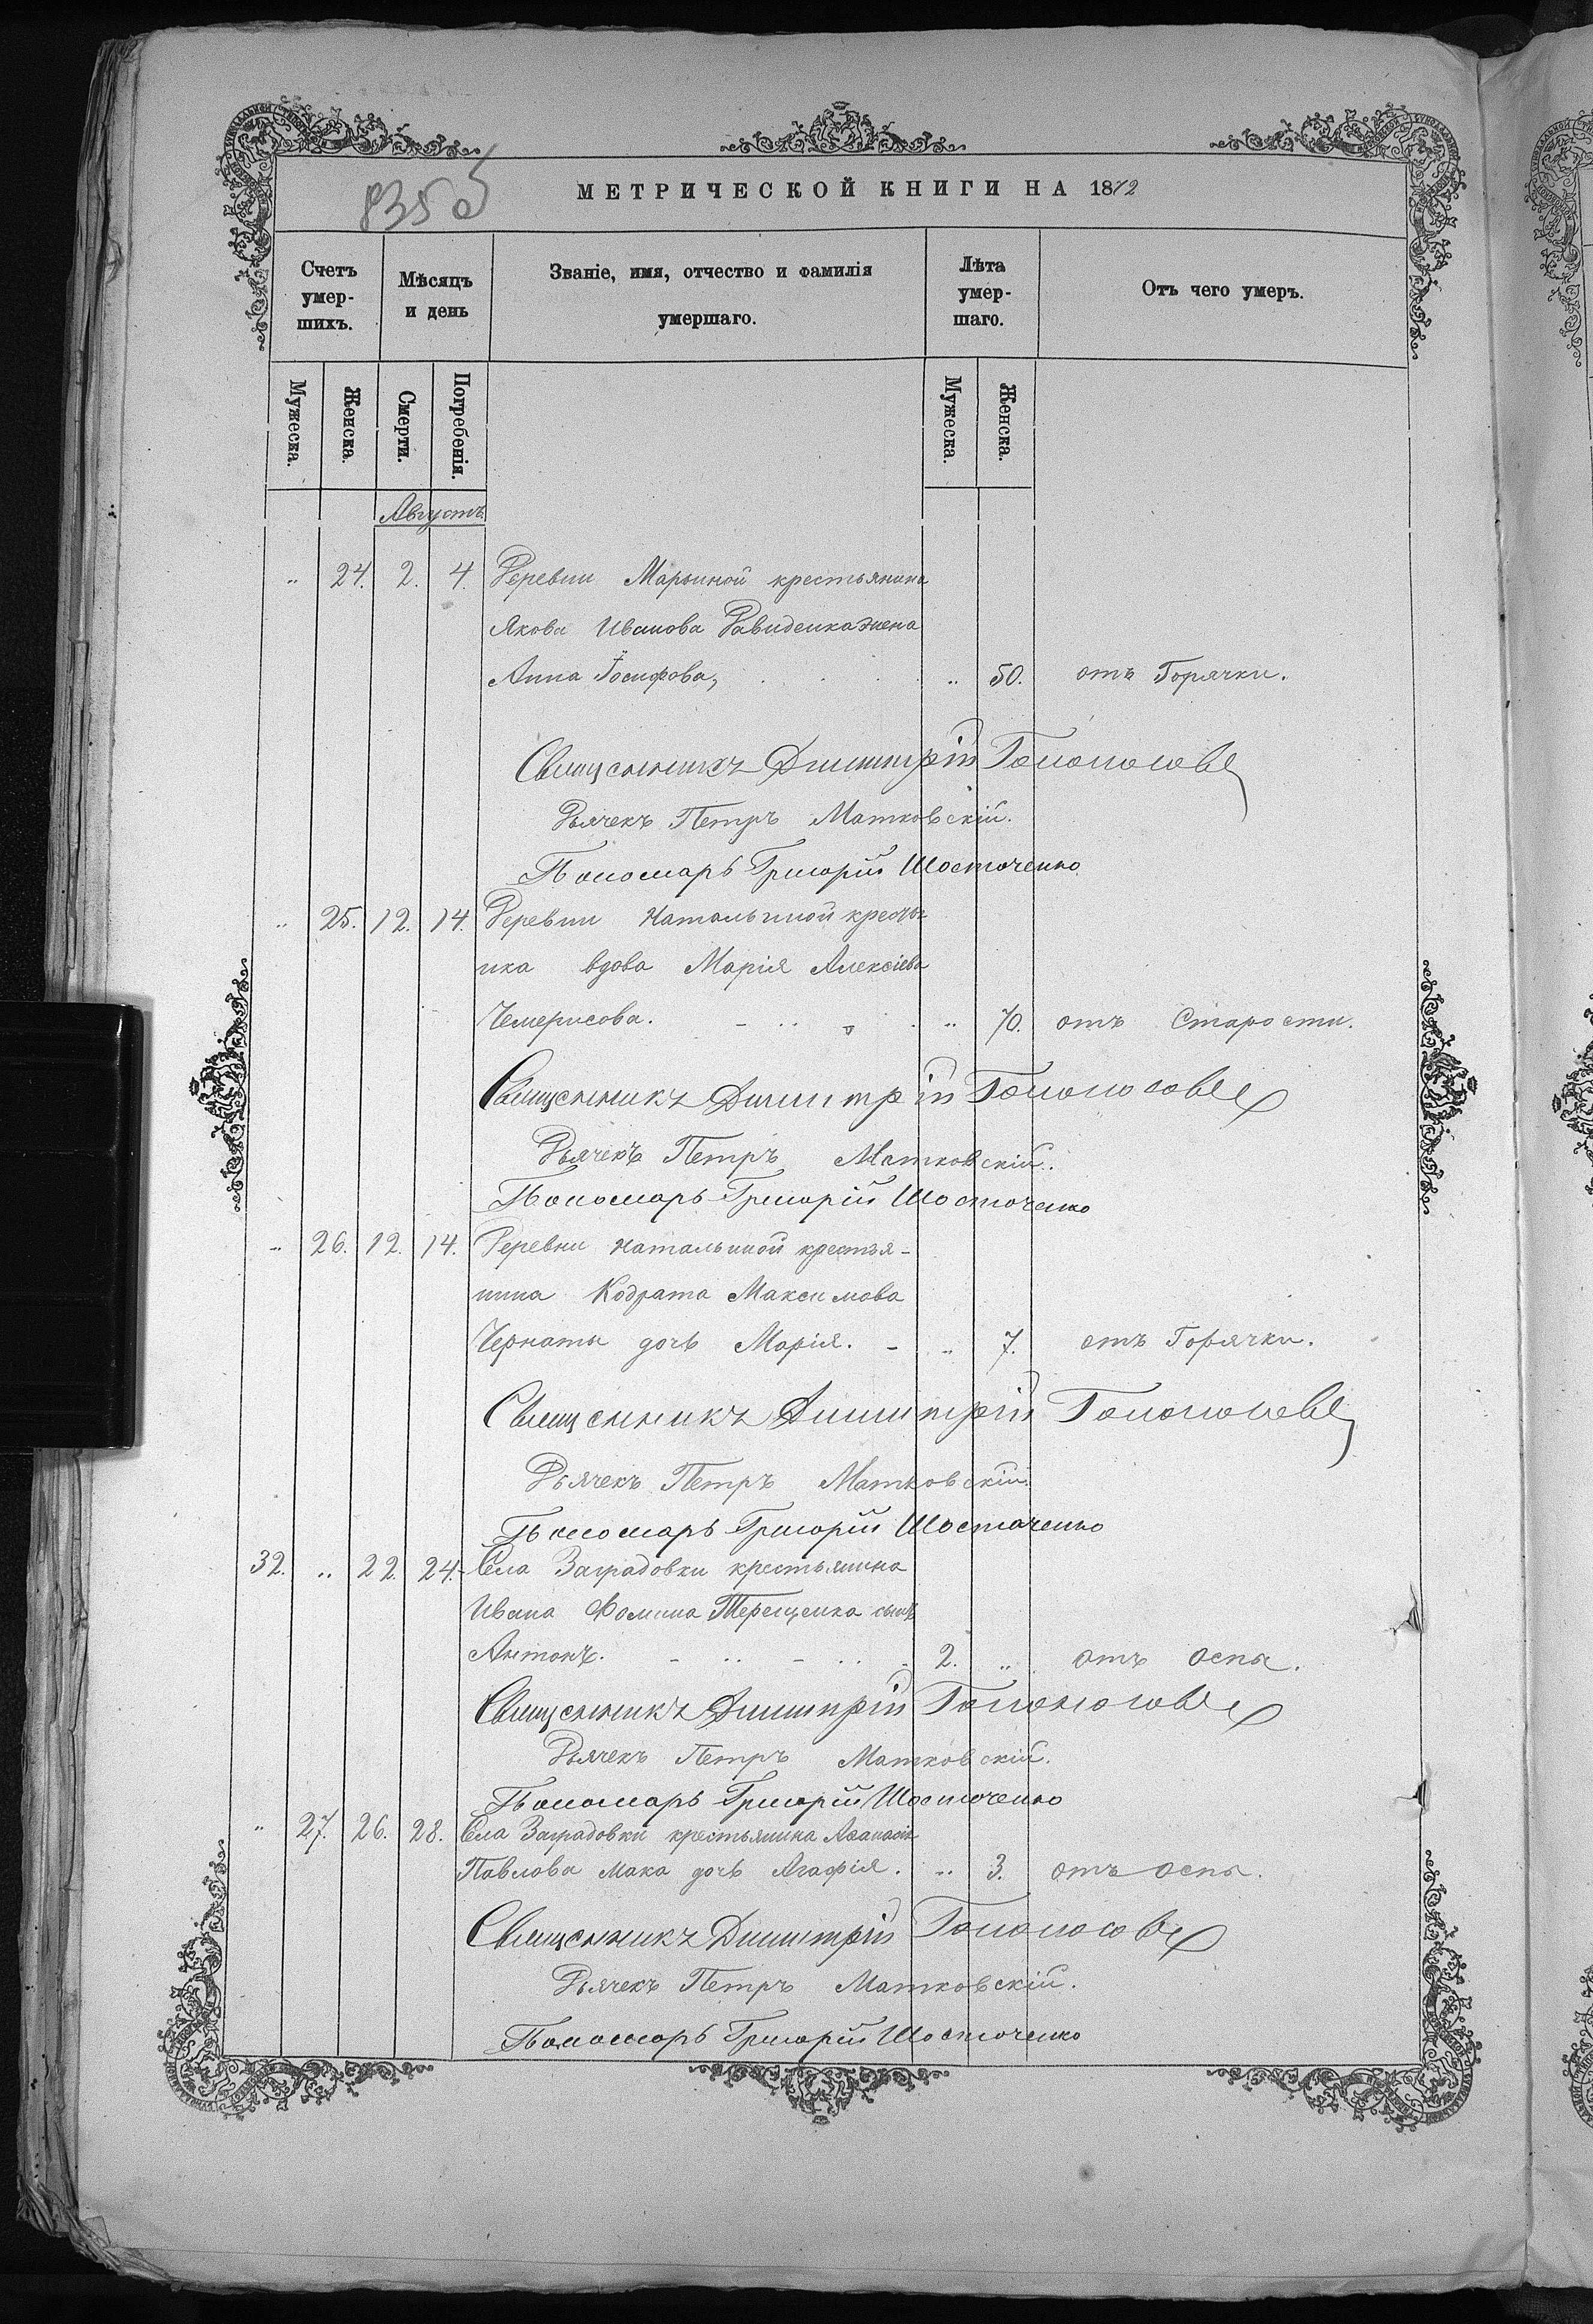 835об
МЕТРИЧЕСКОЙ КНИГИ НА 1872
Счетъ умер-шихъ.
Мѣсяцъ и день
Званіе, имя, отчество и фамилія умершаго.
Лѣта умер-шаго.
Отъ чего умеръ.
Мужеска. Женска. Смерти. Погребенія. Мужеска. Женска.
Августъ
" 24. 2. 4. Деревни Марьиной крестьянина
Якова Иванова Давиденка жена
Анна Іосифова, " 50. отъ Горячки.
Священникъ Димитрій
Дьячекъ Петръ Матковскій.
Пономарь Григорій Шосточенко
" 25. 12. 14. Деревни Натальиной крестьян-
ка вдова Марія Алексіева
Чемерисова. " 70. отъ Старости.
Священникъ Димитрій
Дьячекъ Петръ Матковскій.
Пономарь Григорій Шосточенко
" 26. 12. 14. Деревни Натальиной крестья-
нина Кодрата Максимова
Чернаты дочь Марія. " 7. отъ Горячки.
Священникъ Димитрій
Дьячекъ Петръ Матковскій.
Пономарь Григорій Шосточенко
32. " 22. 24. Села Заградовки крестьянина
Ивана Фомина Терещенка сынъ
Антонъ. 2. " отъ оспы.
Священникъ Димитрій
Дьячекъ Петръ Матковскій.
Пономарь Григорій Шосточенко
" 27. 26. 28. Села Заградовки крестьянина Аѳанасія
Павлова Мака дочь Агафія. " 3. отъ оспы.
Священникъ Димитрій
Дьячекъ Петръ Матковскій.
Пономарь Григорій Шосточенко